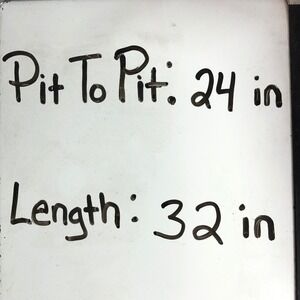 Pit To Pit: 24 in
Length: 32 in